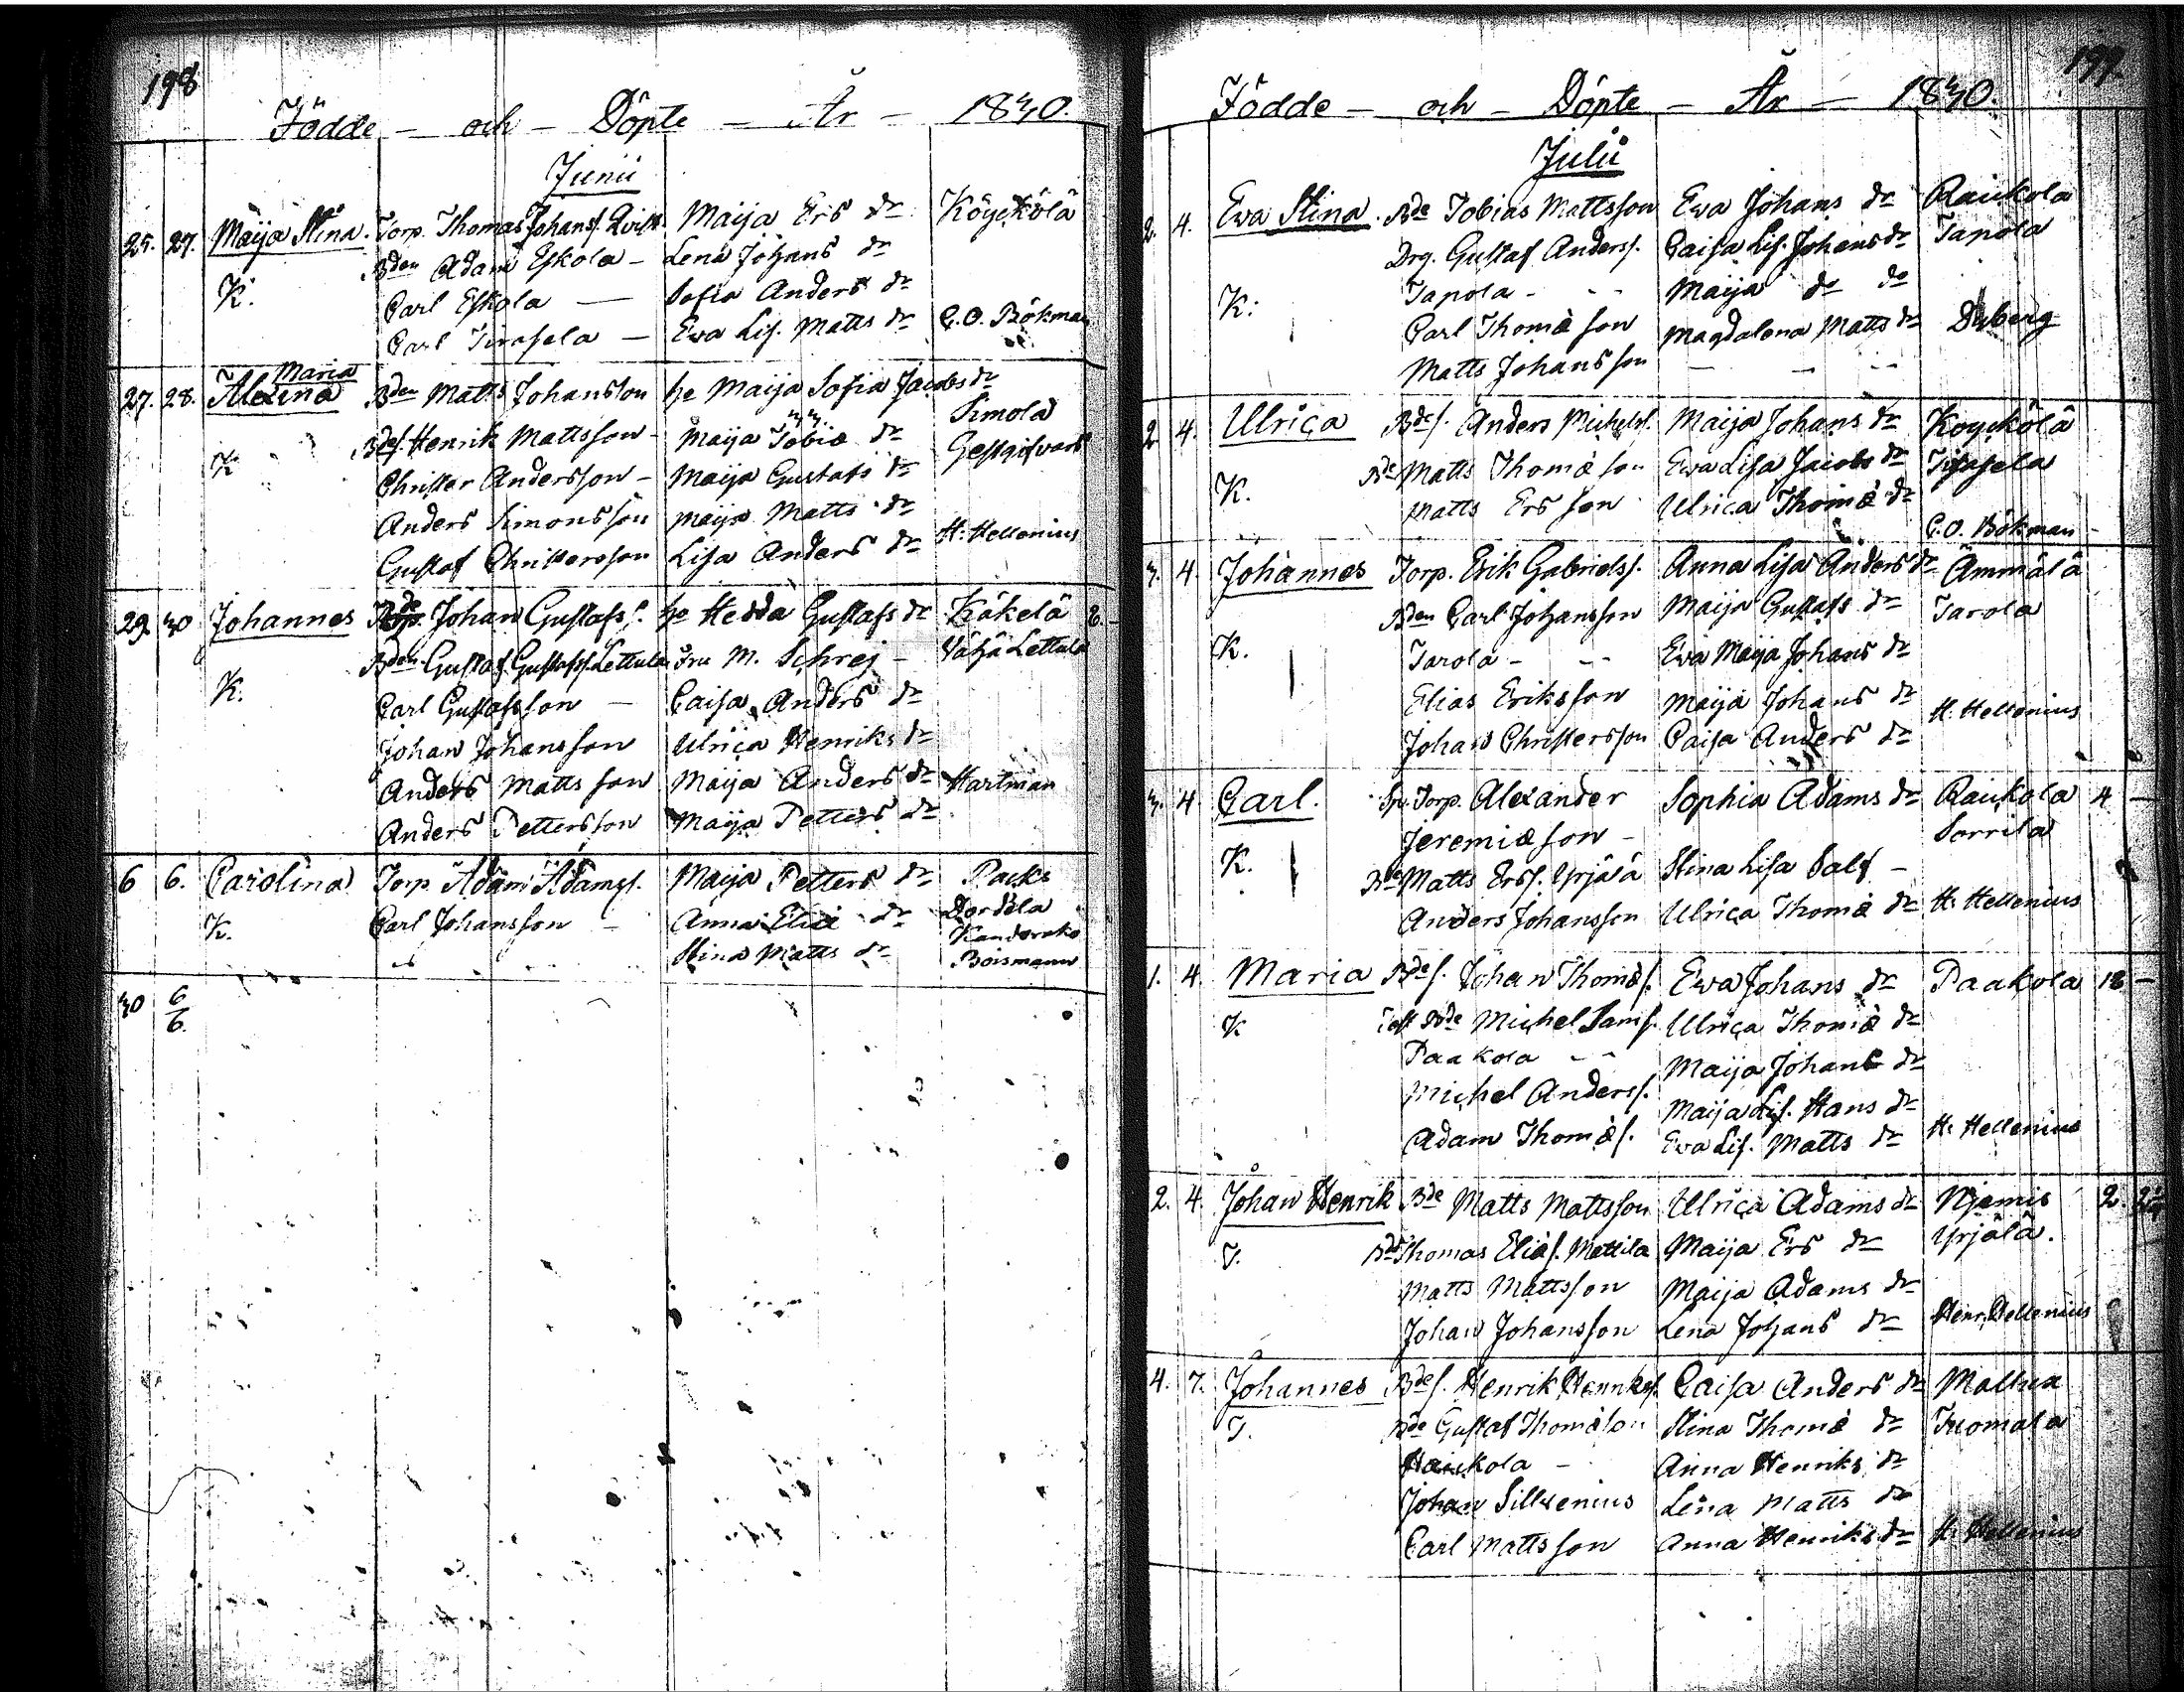 198
Födde — och — Döpte — År — 1840.
Junii
25. 27. Maija Stina. Torp. Thomas Johanss. Qvist. Maija Ers dr Köyckölä
Bden Adam Eskola — Lena Johans dr
K. Carl Eskola — Sofia Anders dr
Carl — Ewa Lis. Matts dr C. O. Bökman
Maria
27. 28. Alexina Bden Matts Johansson he Maija Sofia Jacobs dr
Simola
K Bdes. Henrik Mattsson — Maija Tobiæ dr
Christer Andersson — Maija Gustafs dr
Anders Simonsson Maija Matts dr
Gustaf Christersson Lisa Anders dr H. Hellenius
29. 30 Johannes Johan Gustafss. he Hedda Gustafs dr Käkelä 2. —
Bden Gustaf Gustafss. Lettula Fru M. Schrej — Vähä Lettula
K. Carl Gustafsson — Caisa Anders dr
Johan Johansson Ulrica Henriks dr
Anders Mattsson Maija Anders dr Hartman
Anders Pettersson Maija Petters dr
6 6. Carolina Torp. Adam Adamss. Maija Petters dr Packs
K. Carl Johansson — Anna Eliæ dr
Stina Matts dr Boismann
30 6
6.
199.
Födde — och — Döpte — År — 1840.
Julii
2. 4. Ewa Stina. Bde Tobias Mattsson Ewa Johans dr Raukola
Drg. Gustaf Anderss. Caisa Lis. Johans dr Tapola
K. Tapola - - - Maija dr dr
Carl Thomæson Magdalena Matts dr Dyberg
Matts Johansson — — —
2 4. Ulrica Bdes. Anders Michelss. Maija Johans dr Koyckölä
Bde Matts Thomæson Ewa Lisa Jacobs dr
K. Matts Ersson Ulrica Thomæ dr
C. O. Bökman
3. 4. Johannes Torp. Erik Gabrielss. Anna Lisa Anders dr Ämmälä
Bden Carl Johansson Maija Gustafs dr Tarola
K. Tarola - - - Ewa Maija Johans dr
Elias Eriksson Maija Johans dr
Johan Christersson Caisa Anders dr H. Hellenius
3. 4 Carl. Torp. Alexander Sophia Adams dr Raukola 4 —
Jeremiæson — Sorrila
K. Bde Matts Erss. Yrjälä Stina Lisa Salf —
Anders Johansson Ulrica Thomæ dr H. Hellenius
1. 4. Maria Bdes. Johan Thomæs. Ewa Johans dr Paakola 18 —
K Bde Michel Sams. Ulrica Thomæ dr
Paakola - - Maija Johans dr
Michel Anderss. Maija Lis. Hans dr
Adam Thomæs. Ewa Lis. Matts dr H. Hellenius
2. 4. Johan Henrik Bde Matts Mattsson Ulrica Adams dr Njemis 2.
T. Bde Thomas Eliæs. Mattila Maija Ers dr Yrjälä.
Matts Mattsson Maija Adams dr
Johan Johansson Lena Johans dr Henr. Hellenius
4. 7. Johannes Bdes. Henrik Henrikss. Caisa Anders dr
T. Bde Gustaf Thomæson Stina Thomæ dr Tuomala
Haukola — Anna Henriks dr
Johan Sillvenius Lena Matts dr
Carl Mattsson Anna Henriks dr H. Hellenius